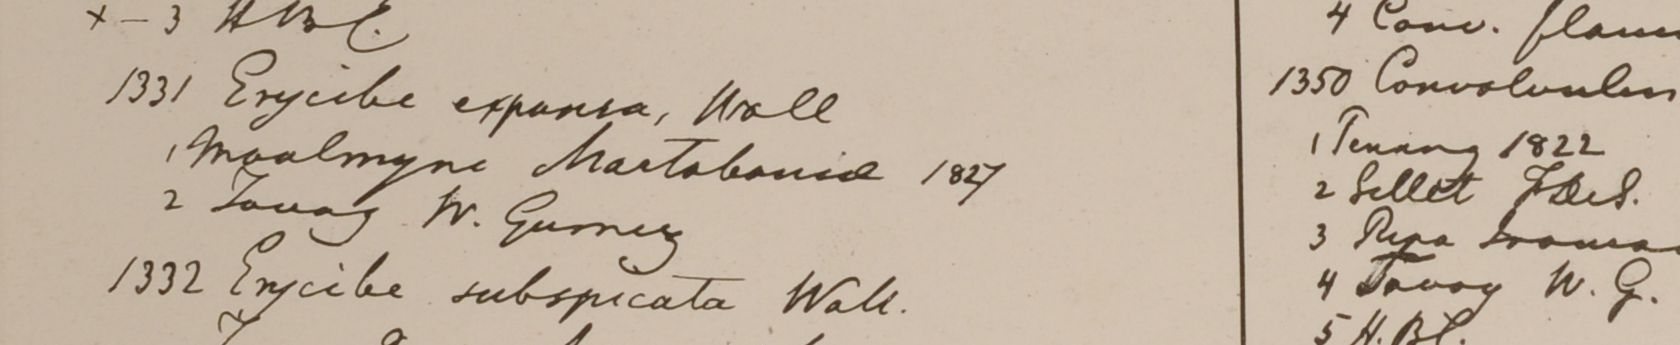 + - 3 H.B.C.
1331 Erycibe expansa, Wall
1 Moalmyne Martabania 1827
2 Tavoy W. Gurney
1332 Erycibe subspicata Wall.
4 Conv.
1350 Convolvulus
1 Penang 1822
2 Sillet
3 Ripa
4 Tavoy W. G.
5 H.B.C.